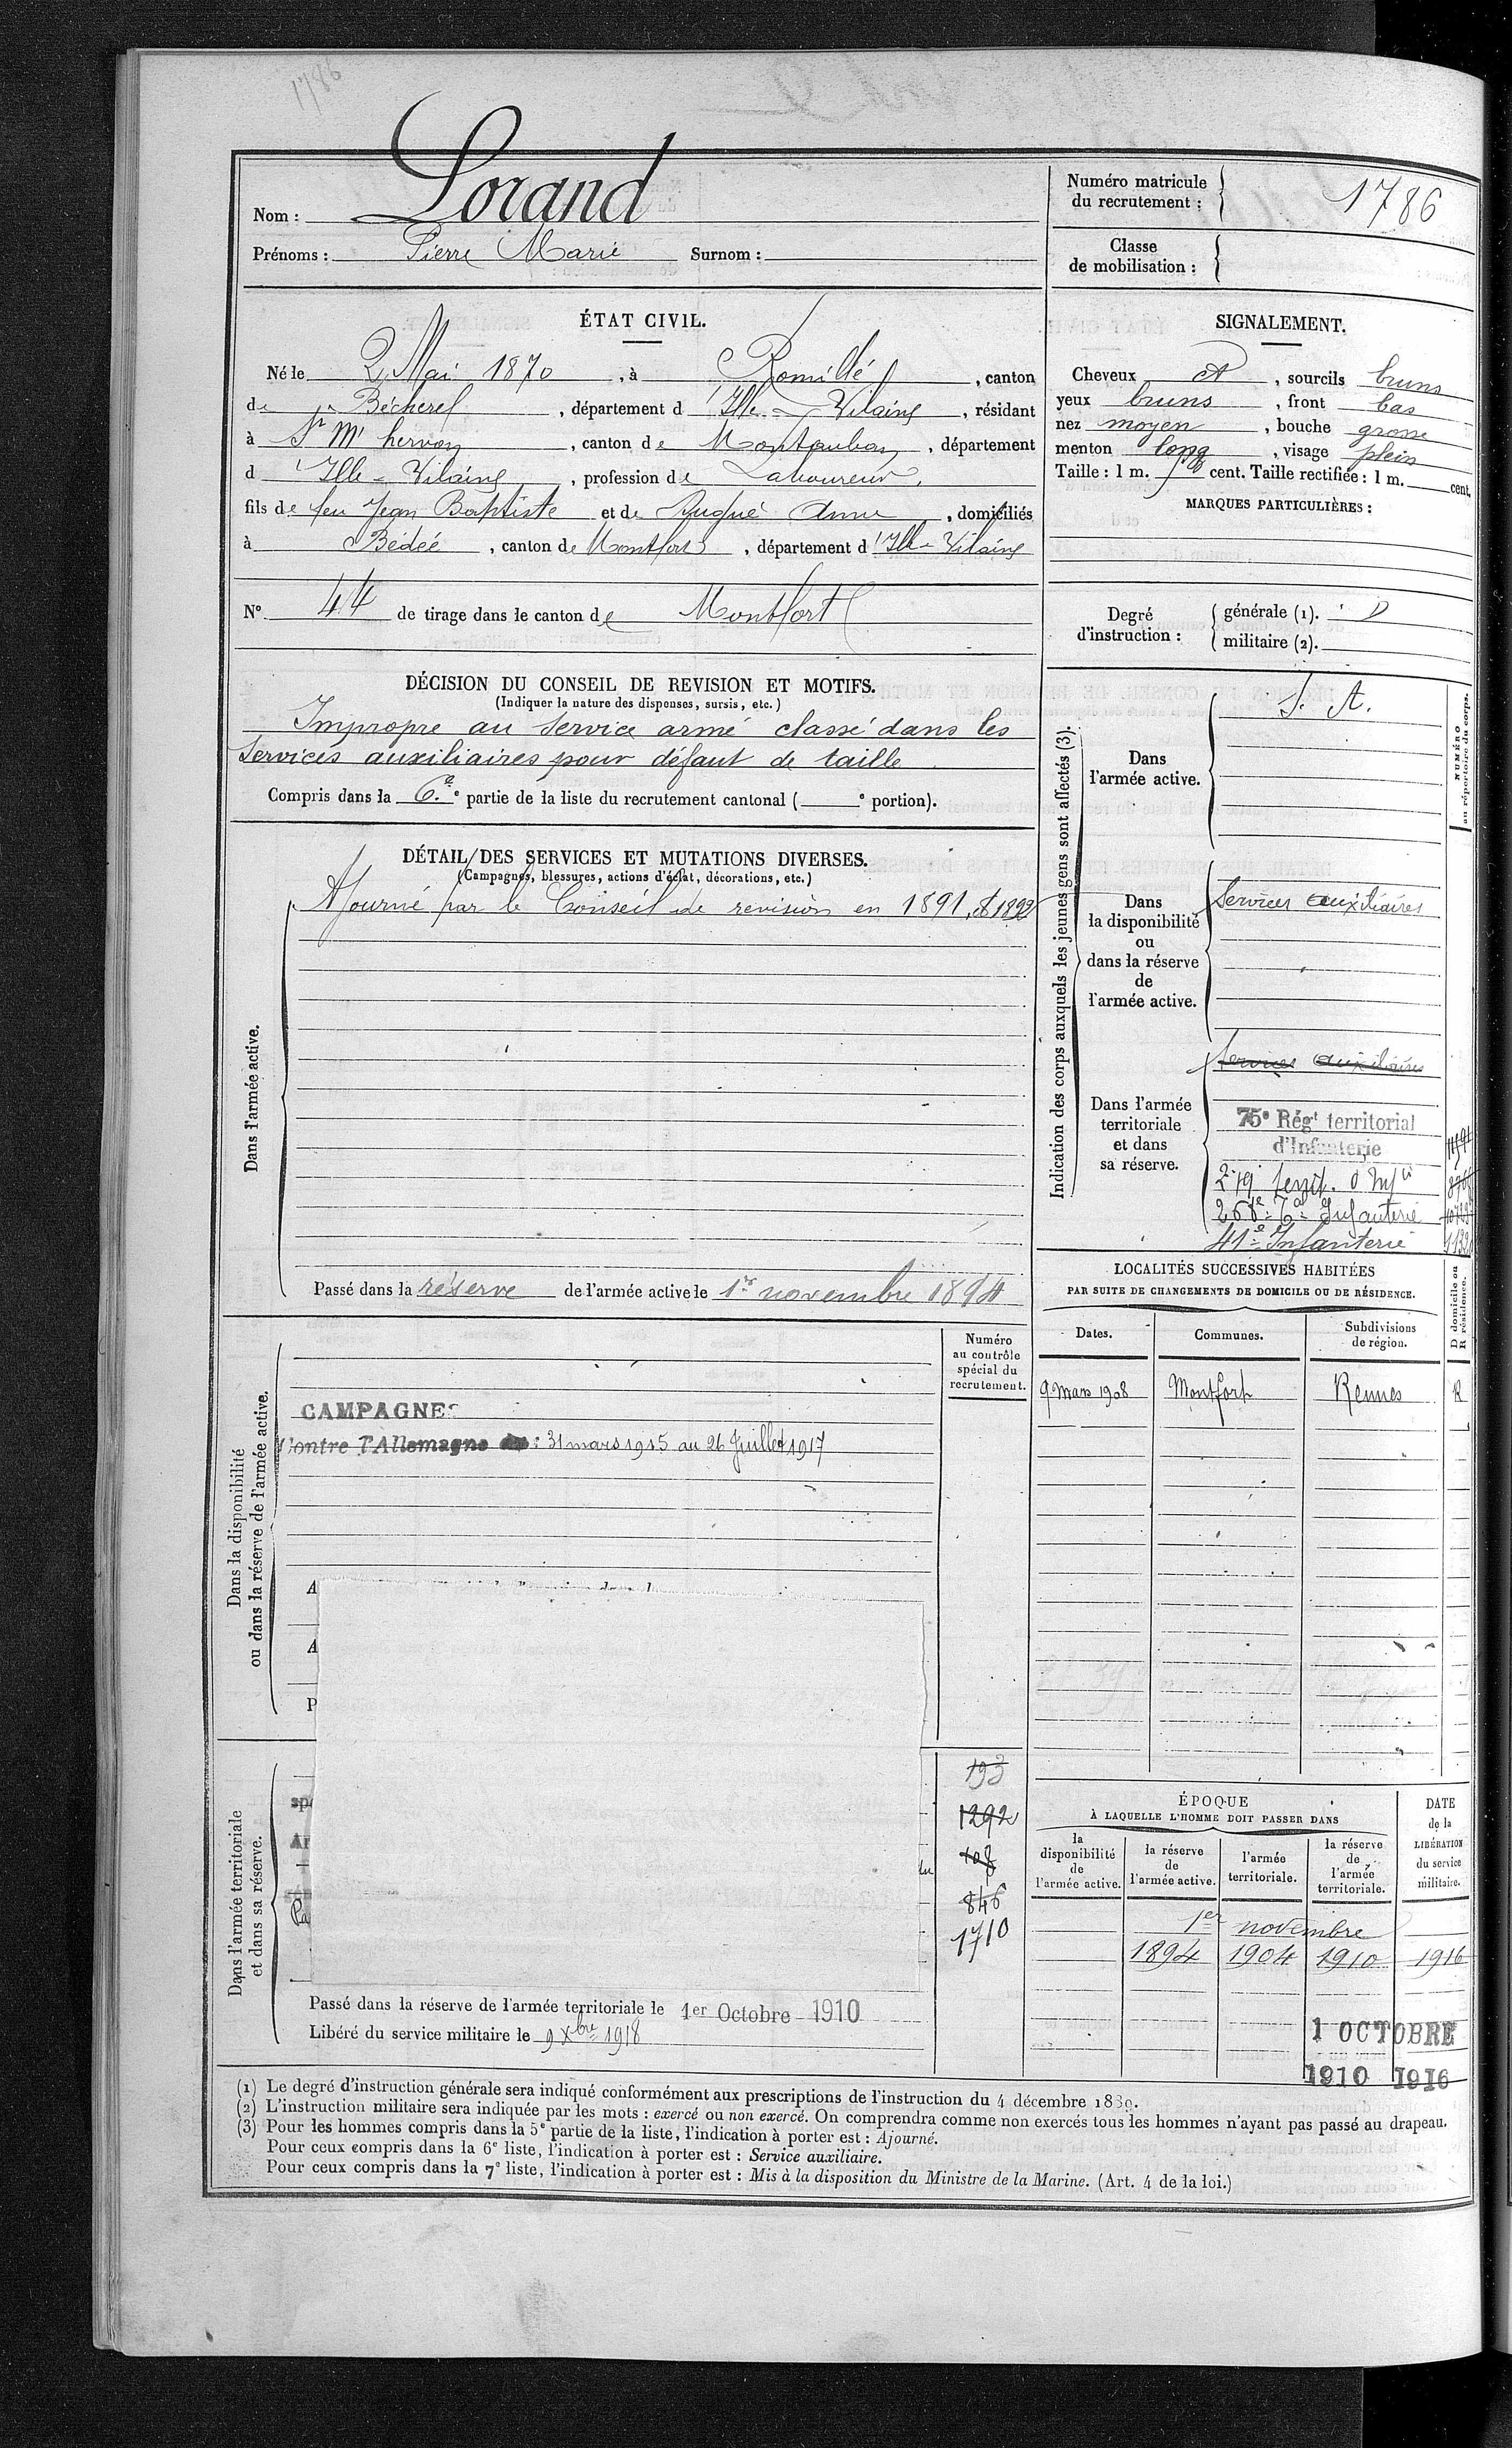 1786
Nom : Lorand
Prénoms : Pierre Marie Surnom :
Numéro matricule du recrutement : 1786
Classe de mobilisation :
ÉTAT CIVIL.
Né le 2 Mai 1870, à Romillé, canton
de Bécherel, département d'Ille-Vilaine, résidant
à St M' hervon, canton de Montauban, département
d'Ille-Vilaine, profession de Laboureur.
fils de feu Jean Baptiste et de Anne, domiciliés
à Bédée, canton de Montfort, département d'Ille-Vilaine
N° 44 de tirage dans le canton de Montfort
SIGNALEMENT.
Cheveux, sourcils bruns
yeux bruns, front bas
nez moyen, bouche grosse
menton long, visage plein
Taille : 1 m. cent. Taille rectifiée : 1 m. cent.
MARQUES PARTICULIÈRES :
Degré d'instruction :
générale (1).
militaire (2).
DÉCISION DU CONSEIL DE REVISION ET MOTIFS.
(Indiquer la nature des dispenses, sursis, etc.)
Impropre au service armé classé dans les
services auxiliaires pour défaut de taille
Compris dans la 6e e partie de la liste du recrutement cantonal ( e portion).
DÉTAIL DES SERVICES ET MUTATIONS DIVERSES.
(Campagnes, blessures, actions d'éclat, décorations, etc.)
Dans l'armée active.
Ajourné par le Conseil de revision en 1891, et 1892
Passé dans la réserve de l'armée active le 1er novembre 1894
Indication des corps auxquels les jeunes gens sont affectés (3).
NUMÉRO au répertoire du corps.
Dans l'armée active.
S. A.
Dans la disponibilité ou dans la réserve de l'armée active.
Services auxiliaires
Dans l'armée territoriale et dans sa réserve.
Services auxiliaires
75e Régt territorial
d'Infanterie
territ. d'Infie
Infanterie
41e Infanterie
LOCALITÉS SUCCESSIVES HABITÉES
PAR SUITE DE CHANGEMENTS DE DOMICILE OU DE RÉSIDENCE.
Dates. Communes. Subdivisions de région. D domicile ou R résidence.
9 Mars 1908 Montfort Rennes R
Dans la disponibilité ou dans la réserve de l'armée active.
Numéro au contrôle spécial du recrutement.
CAMPAGNES
Contre l'Allemagne du : 31 mars 1915 au 26 Juillet 1917
A
A
P
Dans l'armée territoriale et dans sa réserve.
193
1292
108
846
1710
Passé dans la réserve de l'armée territoriale le 1er Octobre 1910
Libéré du service militaire le 9 Xbre 1918
ÉPOQUE
À LAQUELLE L'HOMME DOIT PASSER DANS
la disponibilité de l'armée active.
la réserve de l'armée active.
l'armée territoriale.
la réserve de l'armée territoriale.
DATE de la LIBÉRATION du service militaire.
1er novembre
1894 1904 1910 1916
1 OCTOBRE
1910 1916
(1) Le degré d'instruction générale sera indiqué conformément aux prescriptions de l'instruction du 4 décembre 1889.
(2) L'instruction militaire sera indiquée par les mots : exercé ou non exercé. On comprendra comme non exercés tous les hommes n'ayant pas passé au drapeau.
(3) Pour les hommes compris dans la 5e partie de la liste, l'indication à porter est : Ajourné.
Pour ceux compris dans la 6e liste, l'indication à porter est : Service auxiliaire.
Pour ceux compris dans la 7e liste, l'indication à porter est : Mis à la disposition du Ministre de la Marine. (Art. 4 de la loi.)